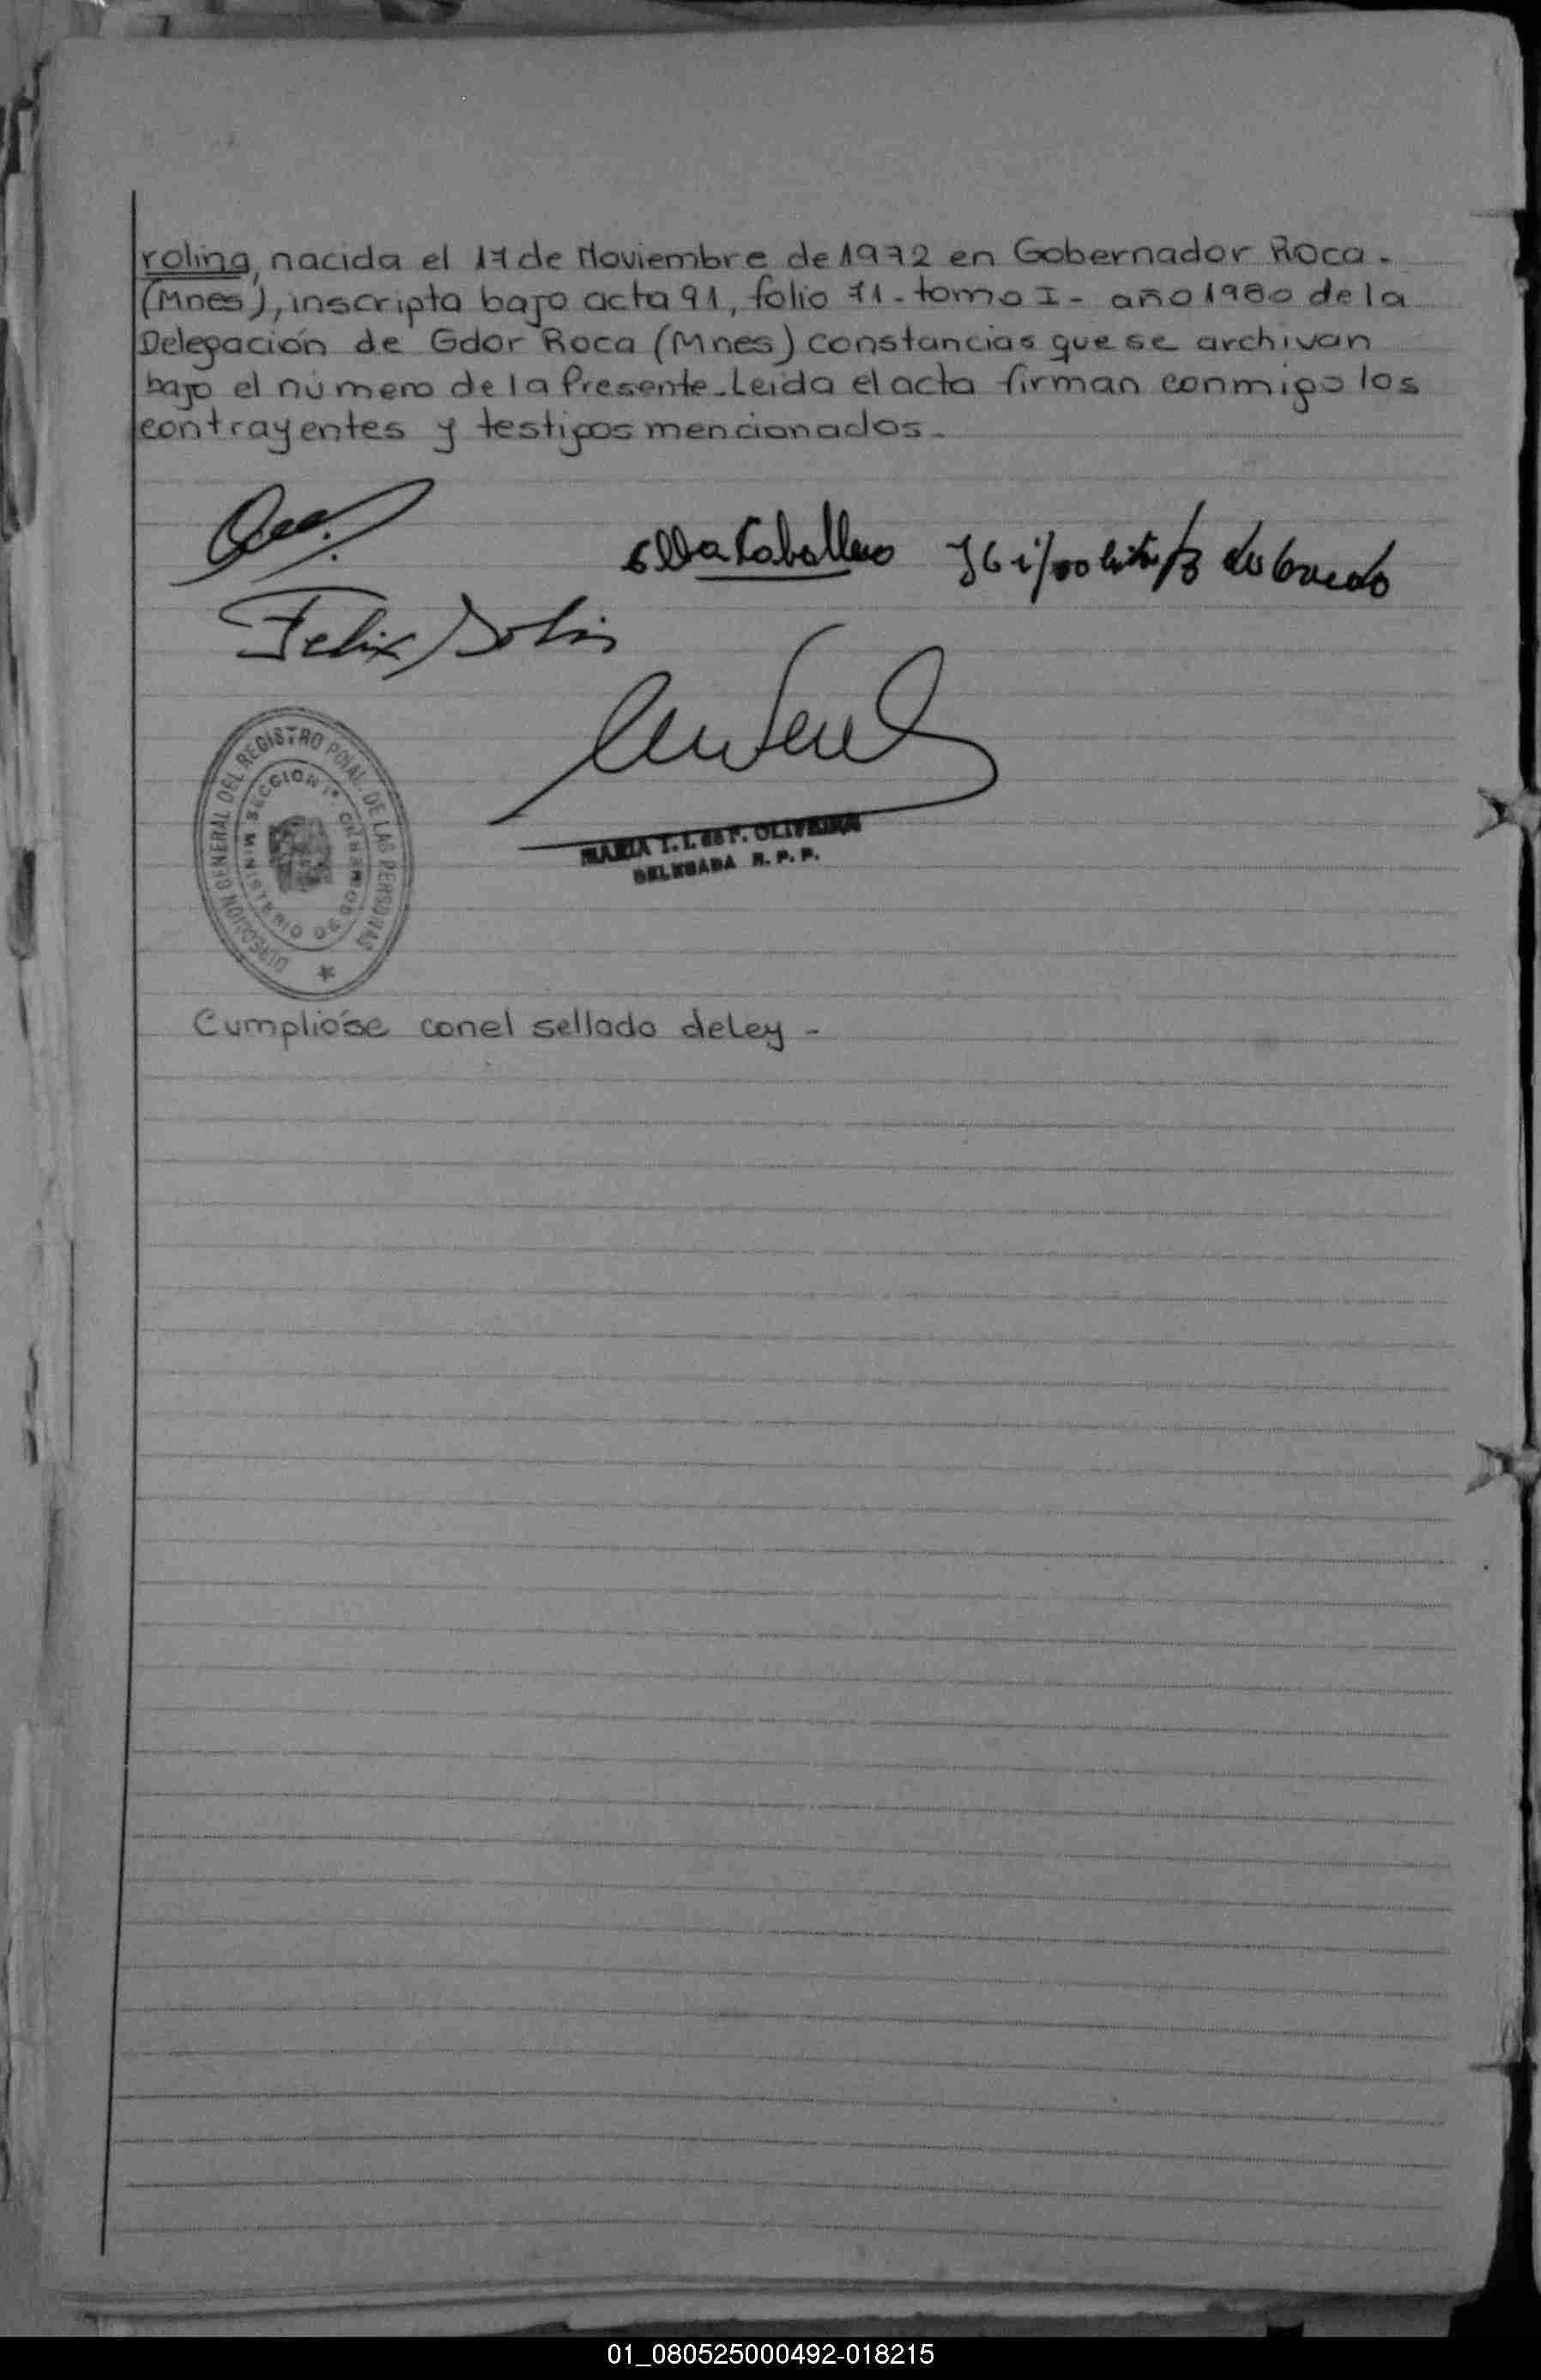 rolina, nacida el 17 de Noviembre de 1972 en Gobernador Roca.
(Mnes), inscripta bajo acta 91, folio 71-tomo I- año 1980 de la
Delegación de Gdor Roca (Mnes) constancias que se archivan
bajo el número de la Presente-Leída el acta firman conmigo los
contrayentes y testigos mencionados-
Caballero
Felix
DIRECCION GENERAL DEL REGISTRO PCIAL. DE LAS PERSONAS
MINISTERIO DE GOBIERNO SECCION 1ª.
MARIA T. I. de F. OLIVEIRA
DELEGADA R. P. P.
Cumplióse con el sellado de Ley -
01_080525000492-018215